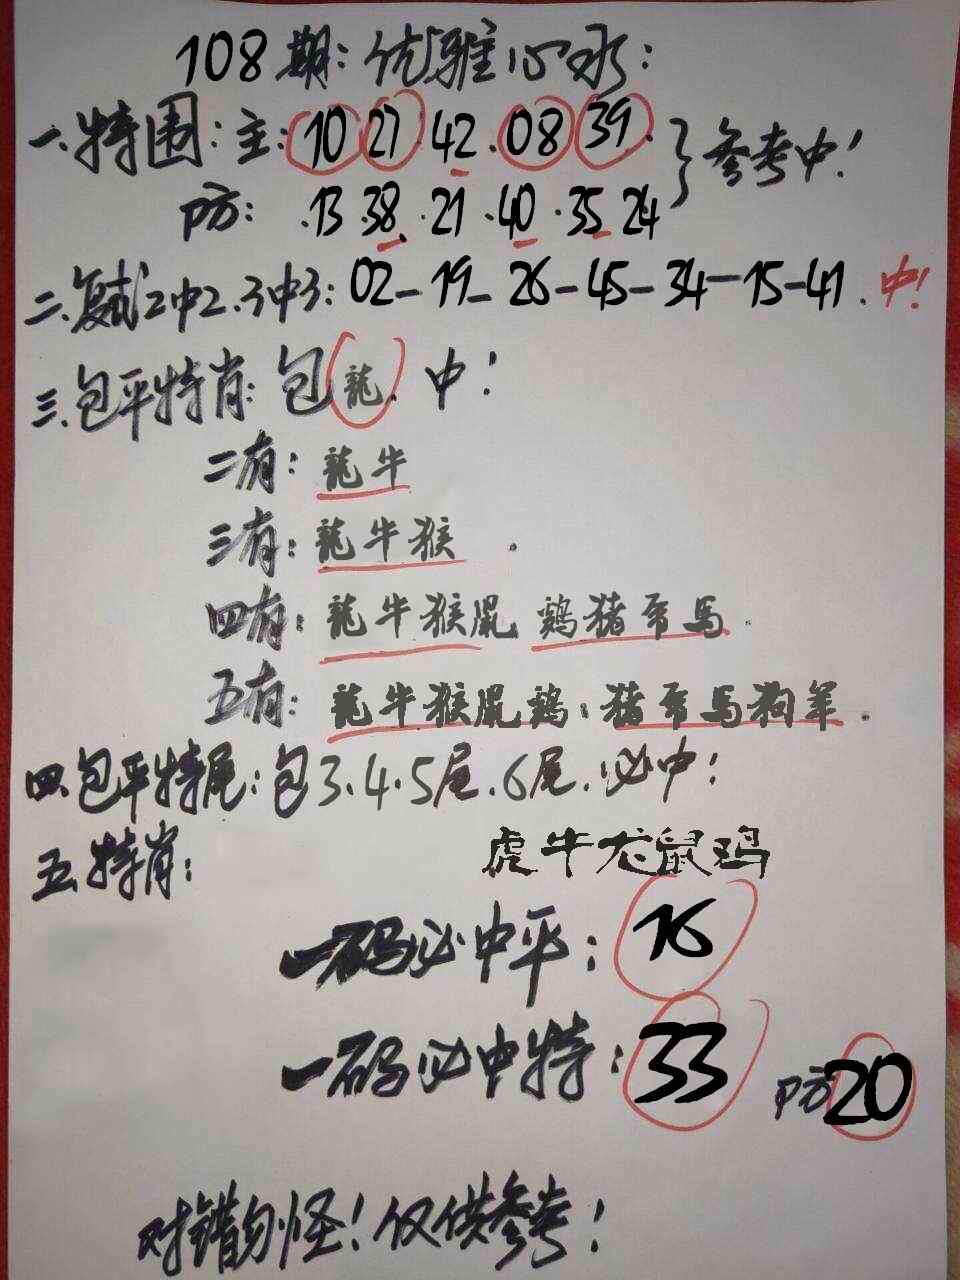 108期:优雅心水:
一.特围:主:10 27 42.08 39. 参考中!
防:.13.38.21.40.35 24
二.复式2中2.3中3:02-19-26-45-34-15-41.中!
三.包平特肖:包龍.中!
二有:龍牛
三有:龍牛猴.
四有:龍牛猴鼠 鷄猪馬.
五有:龍牛猴鼠鷄:猪馬狗羊.
四.包平特尾:包3.4.5尾.6尾.必中!
五.特肖: 虎牛龙鼠鸡
一码必中平:16
一码必中特:33 防20
对错勿怪!仅供参考!